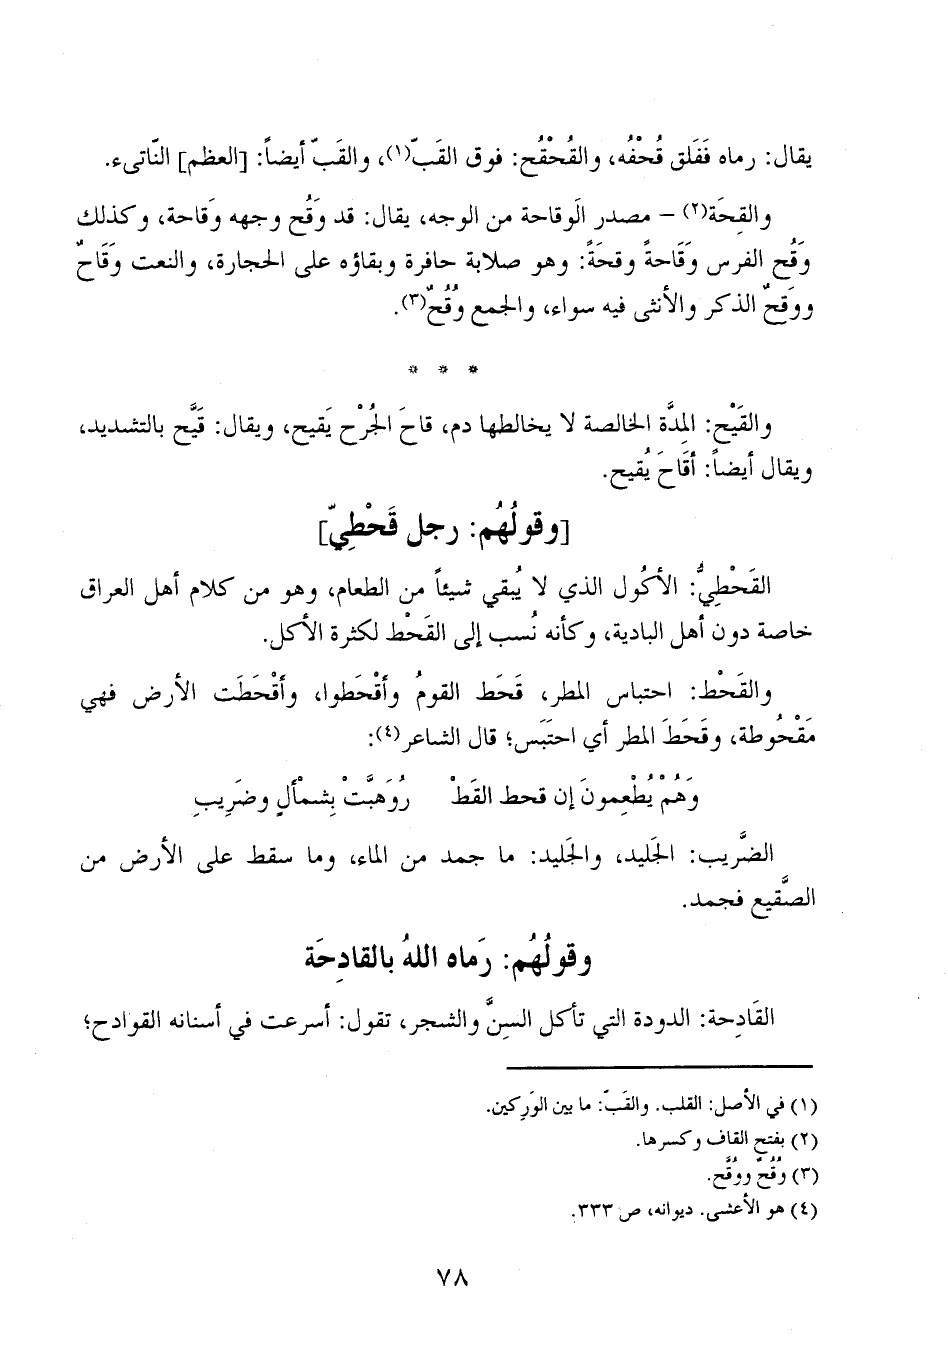 يقال: رماه فَفَلق قُحْفُه، والقُحْقُح: فوق القَبّ(١)، والقَبّ أيضاً: [العظم] النّاتىء.
والقِحَة(٢) – مصدر الَوقاحة من الوجه، يقال: قد وَقُح وجهه وَقاحة، وكذلك
وَقُح الفرس وَقَاحةً وقحَةً: وهو صلابة حافرة وبقاؤه على الحجارة، والنعت وَقَاحٌ
ووَقِحٌ الذكر والأنثى فيه سواء، والجمع وُقُحٌ(٣).
* * *
والقَيْح: المِدَّة الخالصة لا يخالطها دم، قاحَ الجُرْح يَقيح، ويقال: قَيَّح بالتشديد،
ويقال أيضاً: أقَاحَ يُقيح.
[وقولُهُم: رجل قَحْطِيّ]
القَحْطِيُّ: الأكُول الذي لا يُبقي شيئاً من الطعام، وهو من كلام أهل العراق
خاصة دون أهل البادية، وكأنه نُسب إلى القَحْط لكثرة الأكل.
والقَحْط: احتباس المطر، قَحَط القومُ وأقْحَطوا، وأقْحَطَت الأرض فهي
مَقْحُوطة، وقَحَطَ المطر أي احتَبَس؛ قال الشاعر(٤):
وَهُمْ يُطْعِمونَ إن قحط القَطْ رُوَهبَّتْ بِشمْألٍ وضَرِيبِ
الضَّريب: الجَليد، والجَليد: ما جمد من الماء، وما سقط على الأرض من
الصَّقيع فجمد.
وقولُهُم: رَماه اللهُ بالقادِحَة
القَادِحة: الدودة التي تأكل السِنَّ والشجر، تقول: أسرعت في أسنانه القوادح؛
(١) في الأصل: القلب. والقَبّ: ما بين الوَرِكين.
(٢) بفتح القاف وكسرها.
(٣) وُقُحٌ ووُقَّح.
(٤) هو الأعشى. ديوانه، ص ٣٣٣.
٧٨